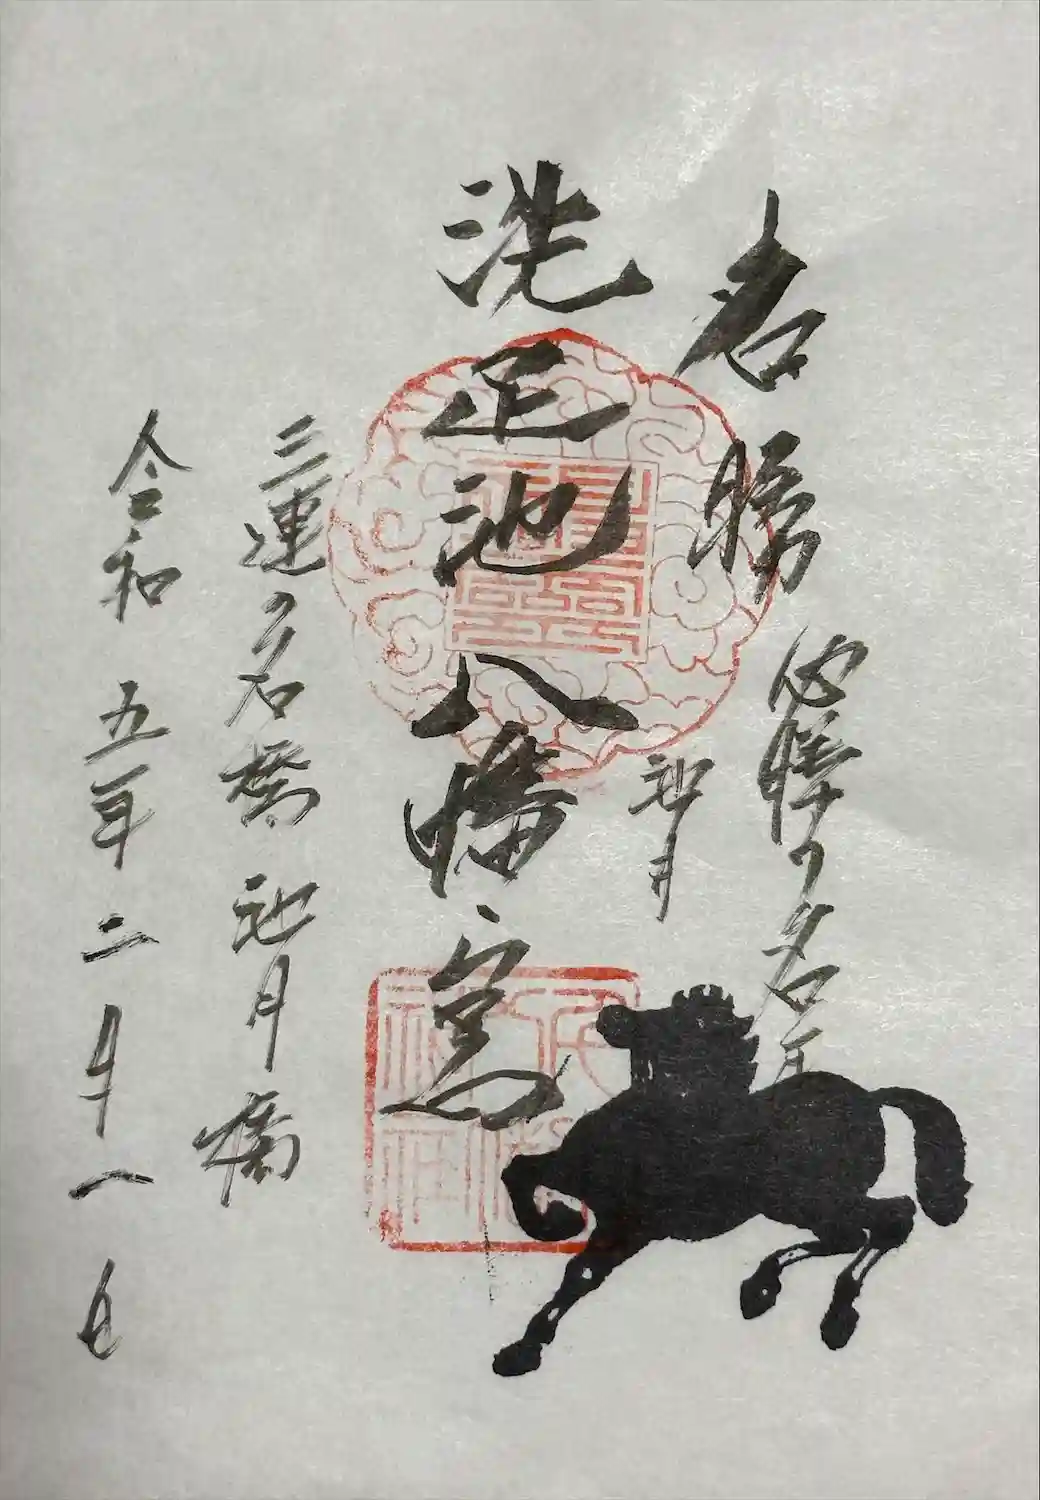 名勝
必勝の名馬
池月
洗足池八幡宮
三連の名橋 池月橋
令和五年二月十一日